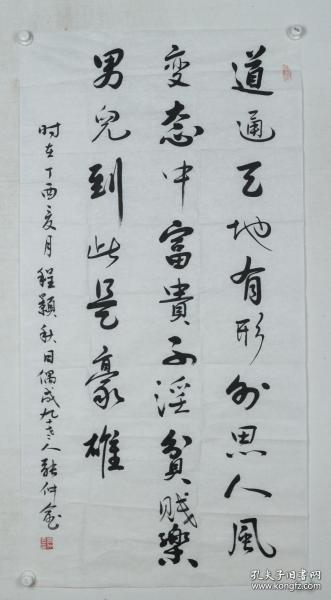 道通天地有形外思入风
变态中富贵不淫贫贱乐
男儿到此是豪雄
时在丁酉夏月程颢秋日偶成九十老人张仲愈
孔夫子旧书网